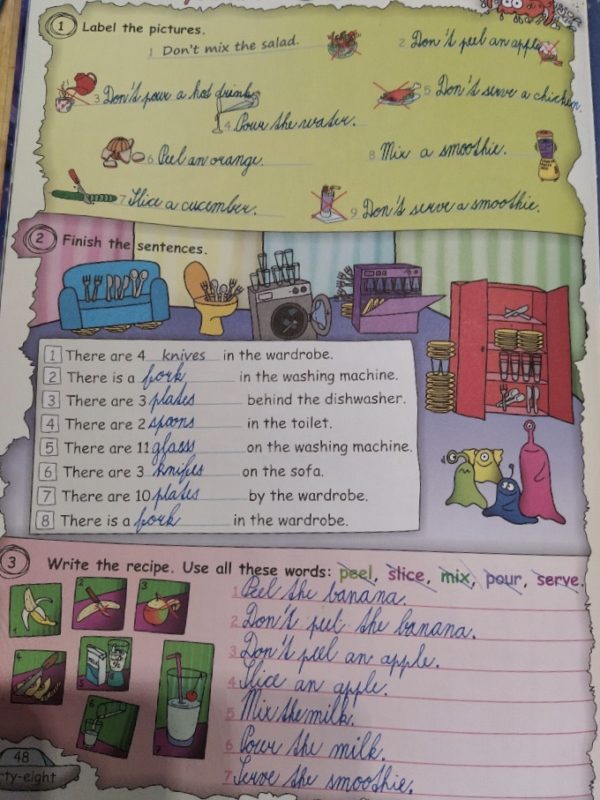 1 Label the pictures.
1 Don't mix the salad.
2 Don't peel an apple
3 Don't pour a hot drink.
5 Don't serve a chicken.
4 Pour the water.
6 Peel an orange.
8 Mix a smoothie.
7 Slice a cucember.
9 Don't serve a smoothie.
2 Finish the sentences.
1 There are 4 knives in the wardrobe.
2 There is a fork in the washing machine.
3 There are 3 plates behind the dishwasher.
4 There are 2 spoons in the toilet.
5 There are 11 glass on the washing machine.
6 There are 3 knifes on the sofa.
7 There are 10 plates by the wardrobe.
8 There is a fork in the wardrobe.
3 Write the recipe. Use all these words: peel, slice, mix, pour, serve.
1 Peel the banana.
2 Don't the banana.
3 Don't peel an apple.
4 Slice an apple.
5 Mix the milk.
6 Pour the milk.
7 Serve the smoothie.
48
rty-eight